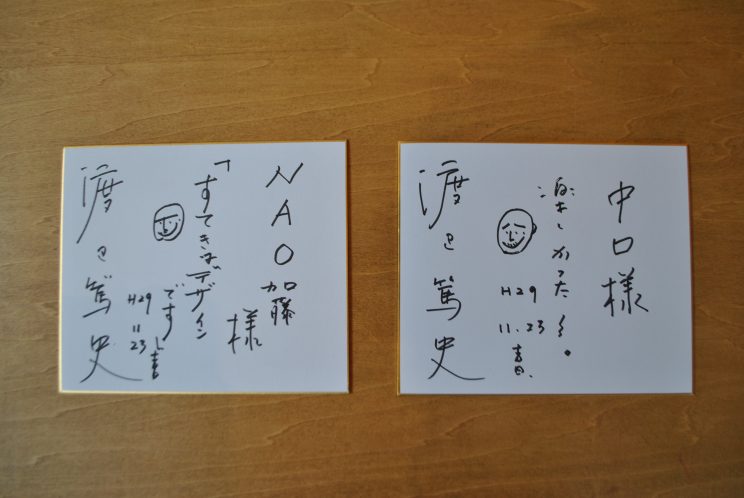 中口様
楽しかった
H29
11.23
渡辺篤史
NAO加藤様
「すてきなデザイン
です」
H29
11
23
渡辺篤史